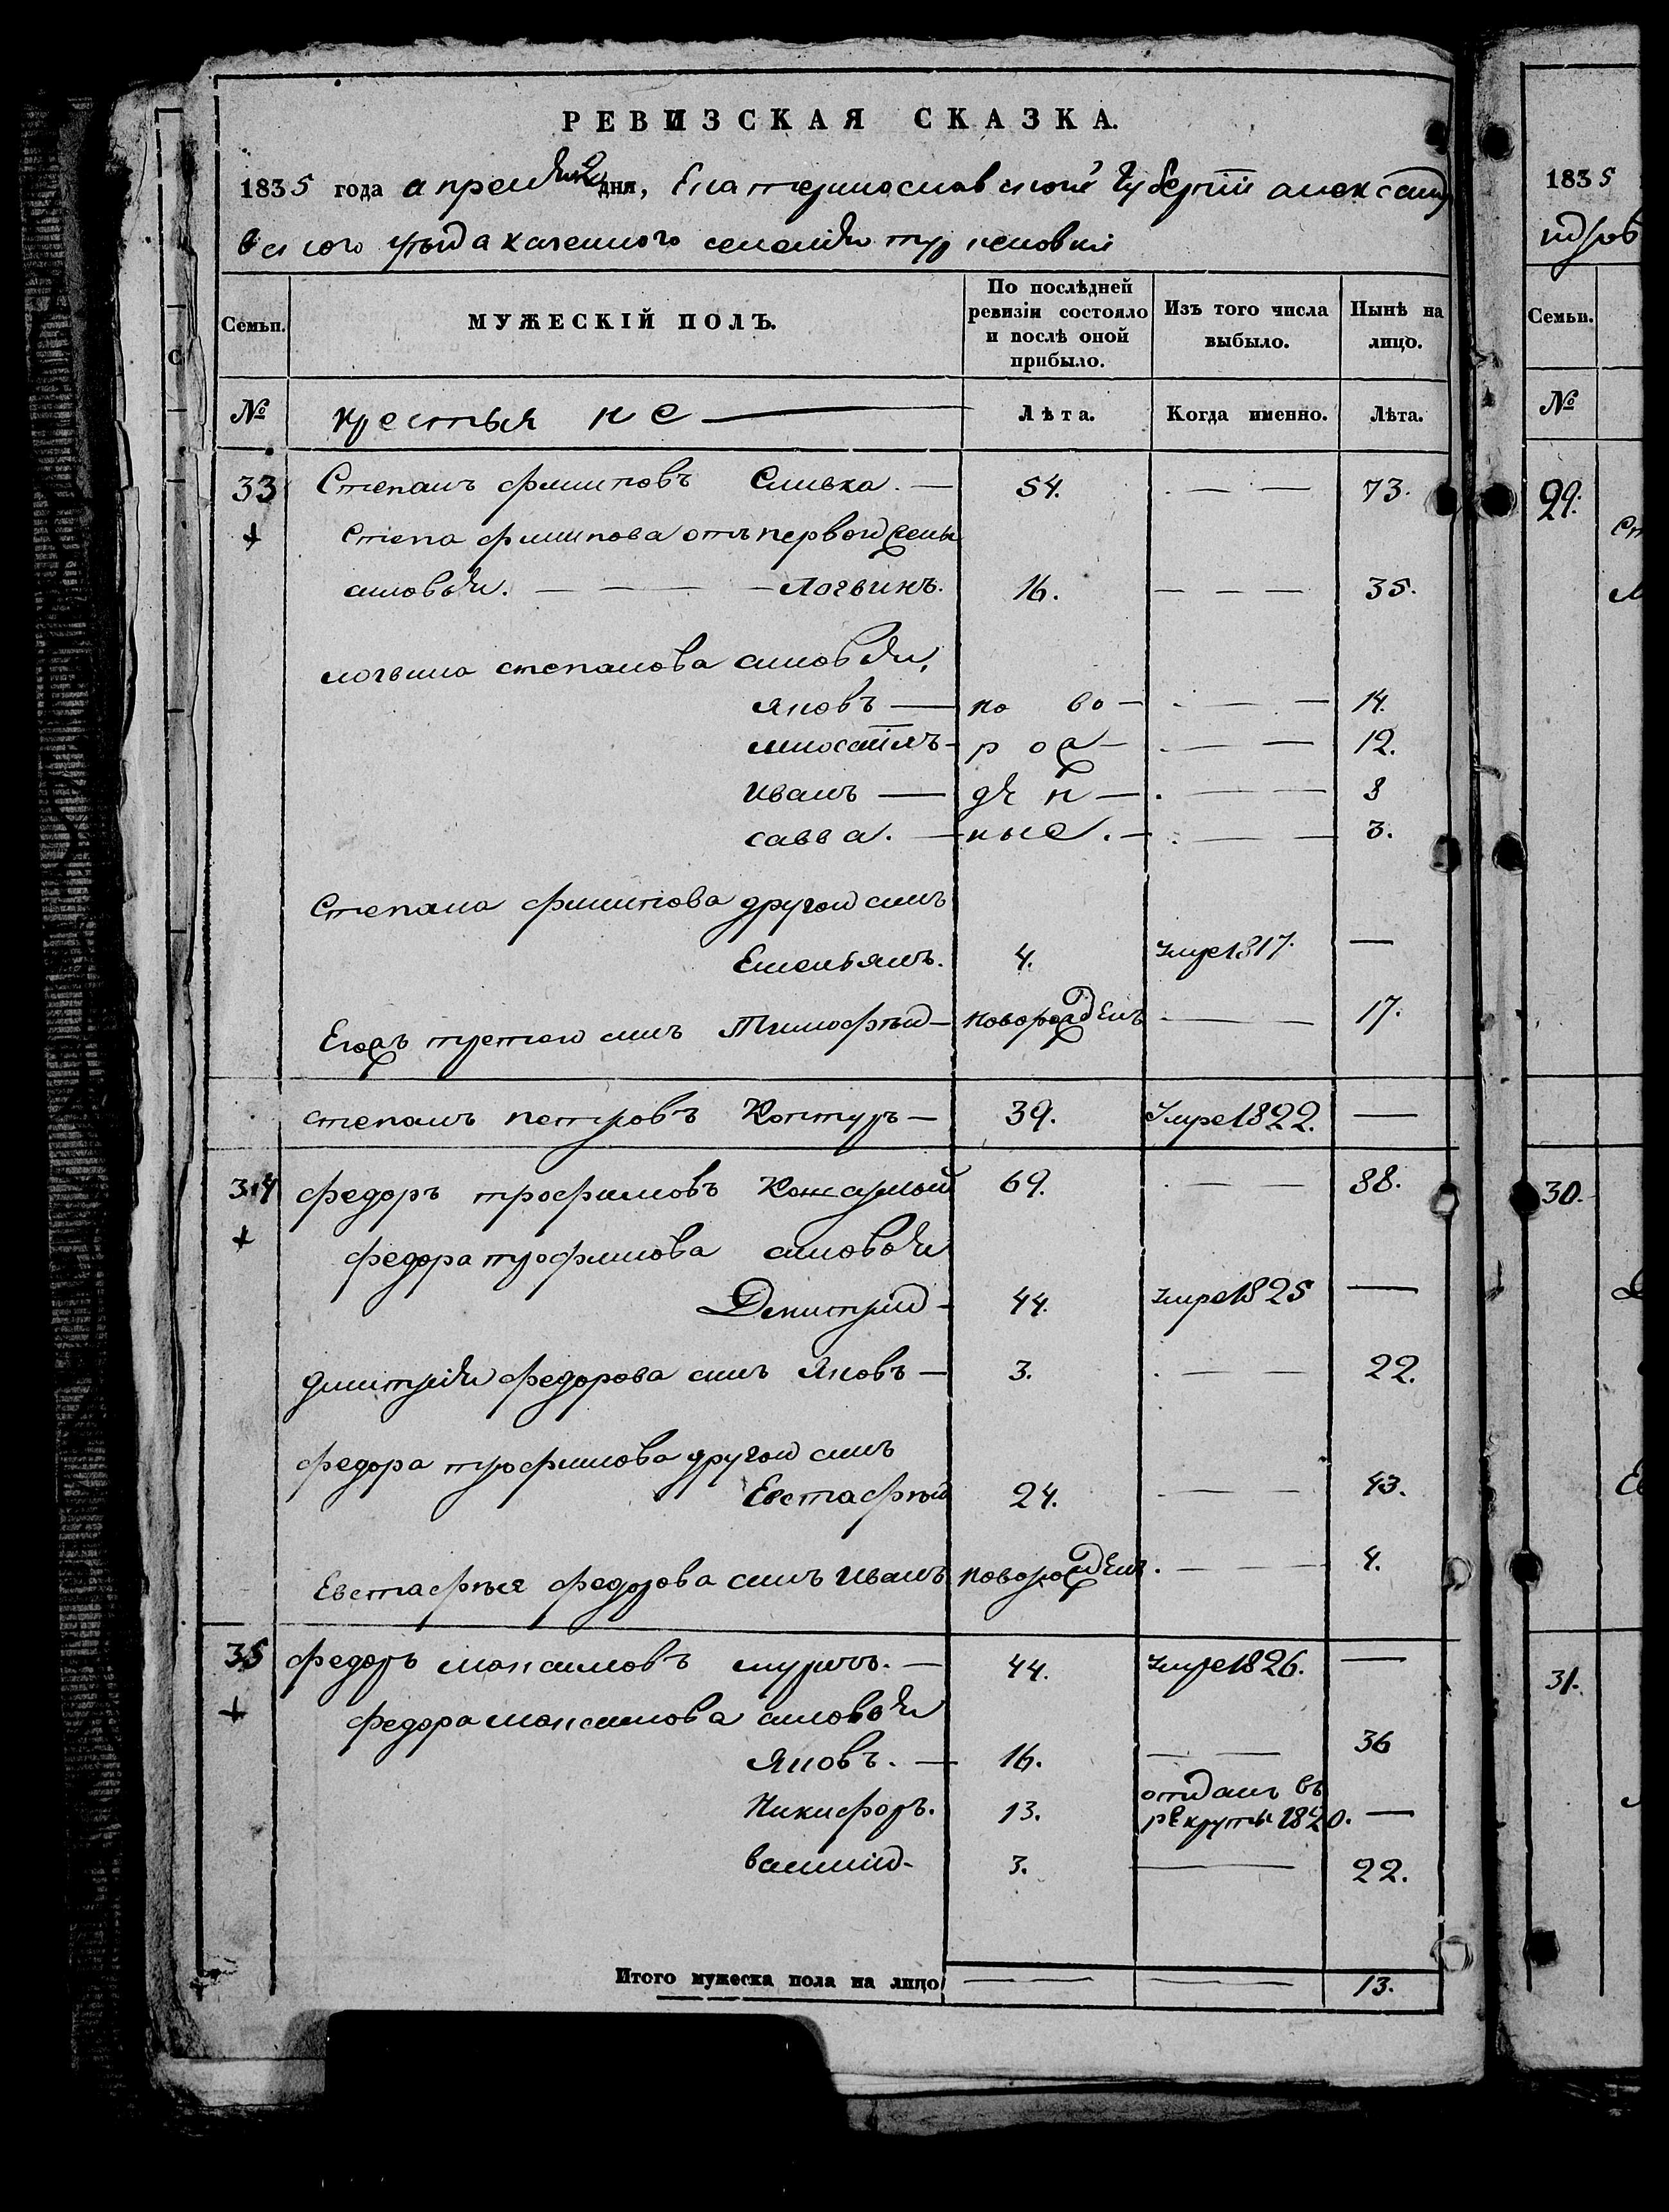 РЕВИЗСКАЯ СКАЗКА.
1835 года апреля дня, Екатеринославской Губернїи александ
вского уезда казенного селенїя туркеновки
Семьи. МУЖЕСКІЙ ПОЛЪ. По послѣдней ревизіи состояло и послѣ оной прибыло. Изъ того числа выбыло. Нынѣ на лицо.
№ крестьяне Лѣта. Когда именно. Лѣта.
33 Степанъ филиповъ Сливка. 54. 73.
Степа филипова отъ первой жены
синовья. Логвинъ. 16. 35.
логвина степанова синовья,
яковъ ново 14.
михаилъ рож 12.
иванъ ден 8
савва. ные. 3.
Степана филипова другой синъ
Емельянъ. 4. умре 1817.
Егожъ третой синъ Тимофѣй новорожденъ 17.
степанъ петровъ Коптуръ 39. Умре 1822.
34 федоръ трофимовъ Кожарный 69. 88.
федора трофимова синовья
Демитрий 44. умре 1825
дмитрия федорова синъ яковъ 3. 22.
федора трофимова другой синъ
Евстафѣй 24. 43.
Евстафѣя федорова синъ иванъ новорожденъ. 4.
35 федоръ максимовъ 44. умре 1826.
федора максимова синовья
яковъ. 16. 36
Никифоръ. 13. отданъ въ
рекруты 1820.
василий 3. 22.
Итого мужеска пола на лицо 13.
1835
№
29.
30.
31.
Семьи.